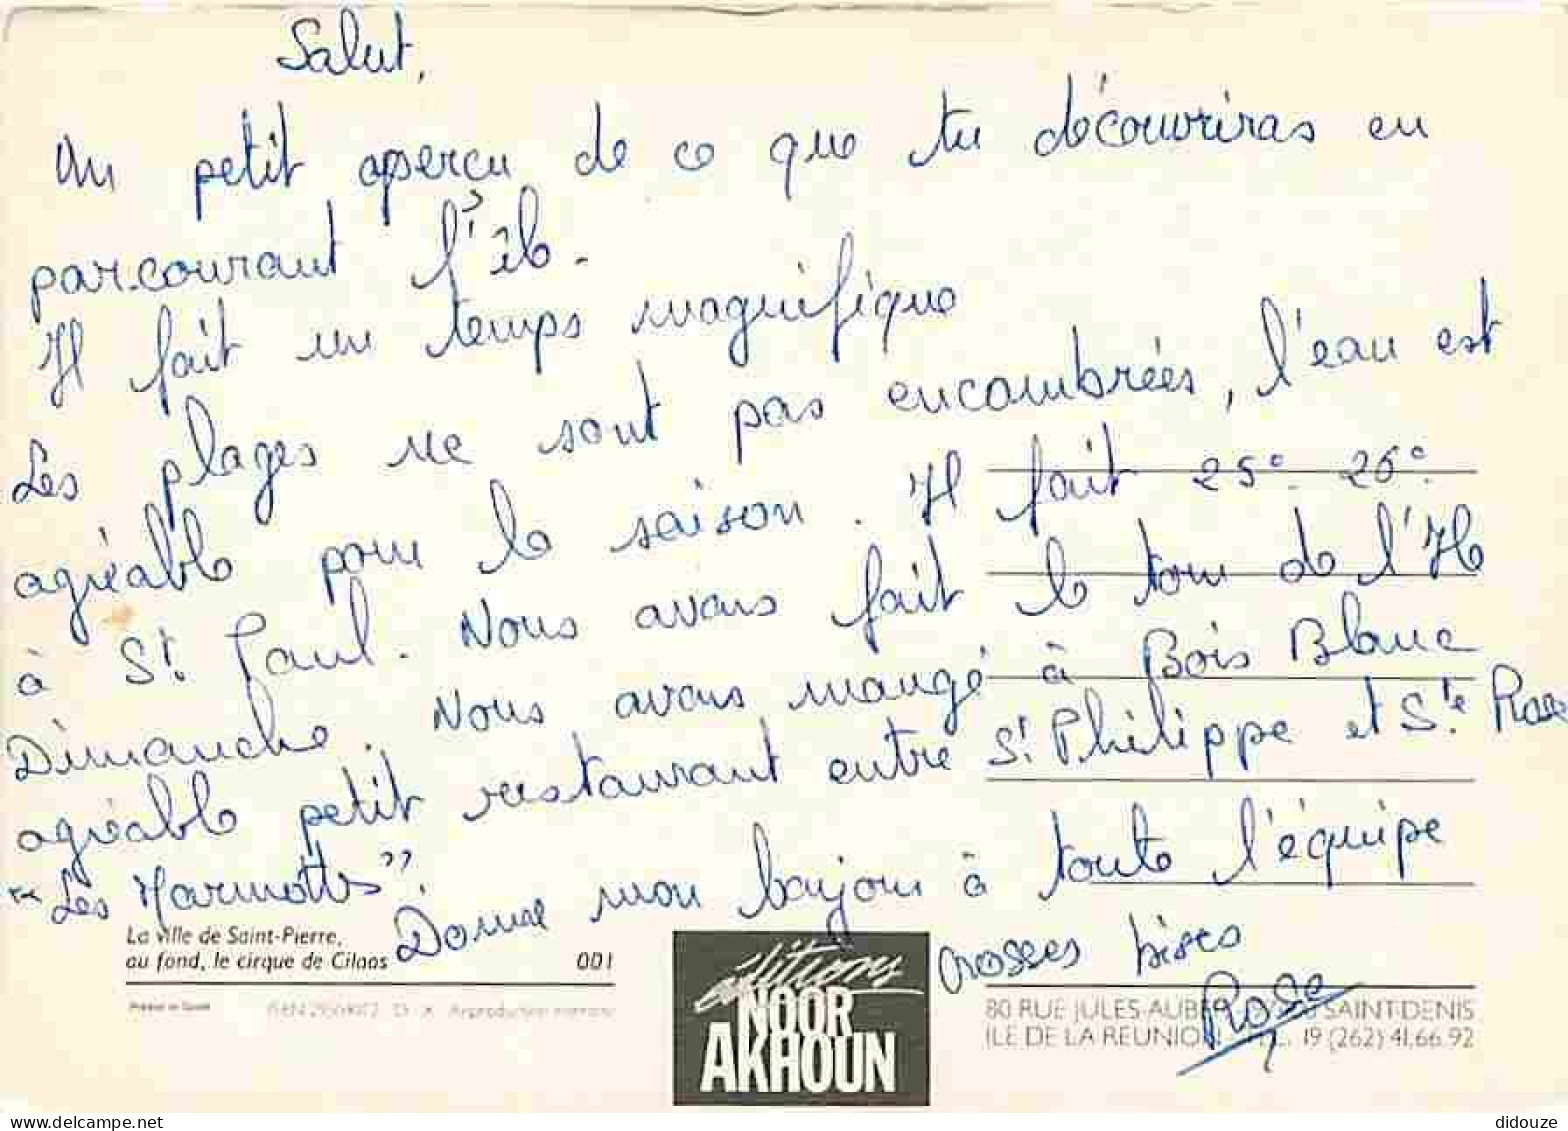 Salut,
Un petit aperçu de ce que tu découvriras en
parcourant l'île.
Il fait un temps magnifique
Les plages ne sont pas encombrées, l'eau est
agréable pour la saison. Il fait 25° 26°
à St. Paul. Nous avons fait le tour de l'Ile
Dimanche. Nous avons mangé à Bois Blanc
agréable petit restaurant entre St Philippe et Ste Rose
"Les Marmottes".
Donne mon bonjour à toute l'équipe
Grosses bises
Rose
La ville de Saint-Pierre,
au fond, le cirque de Cilaos 001
Reproduction interdite
éditions
NOOR
AKHOUN
80 RUE JULES-AUBER SAINT-DENIS
ILE DE LA REUNION 19 (262) 41.66.92
delcampe.net
didouze